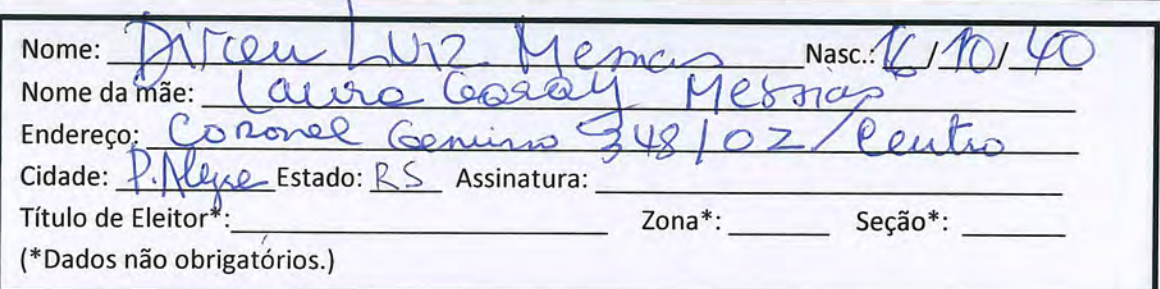 Nome: Dirceu Luiz Messias Nasc.: 16/10/40
Nome da mãe: Laura Garay Messias
Endereço: Coronel Genuino 348/02/Centro
Cidade: P. Alegre Estado: RS Assinatura:
Título de Eleitor*: Zona*: Seção*:
(*Dados não obrigatórios.)